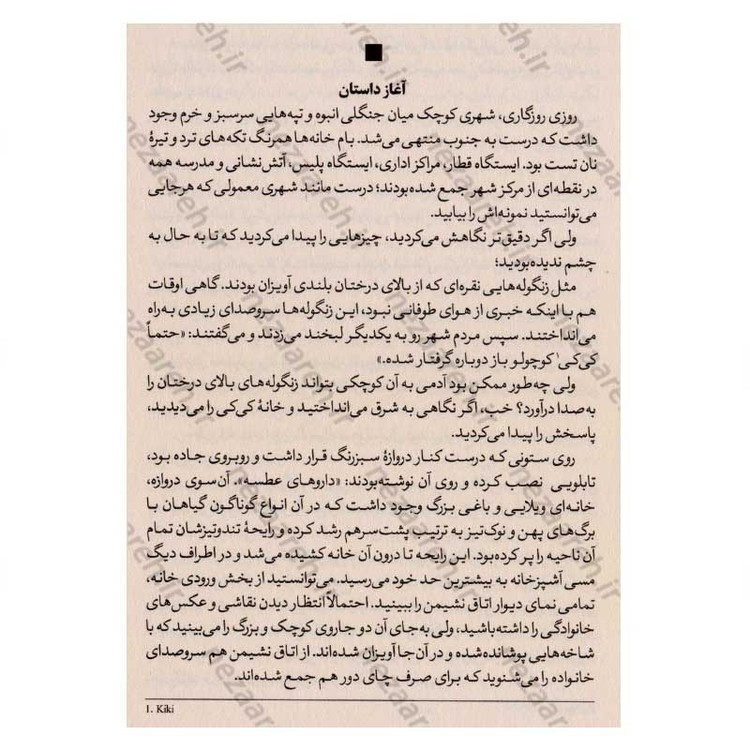 آغاز داستان
روزی روزگاری، شهری کوچک میان جنگلی انبوه و تپه‌هایی سرسبز و خرم وجود
داشت که درست به جنوب منتهی می‌شد. بام خانه‌ها همرنگ تکه‌های ترد و تیرهٔ
نان تست بود. ایستگاه قطار، مراکز اداری، ایستگاه پلیس، آتش‌نشانی و مدرسه همه
در نقطه‌ای از مرکز شهر جمع شده‌بودند؛ درست مانند شهری معمولی که هرجایی
می‌توانستید نمونه‌اش را بیابید.
ولی اگر دقیق‌تر نگاهش می‌کردید، چیزهایی را پیدا می‌کردید که تا به حال به
چشم ندیده‌بودید؛
مثل زنگوله‌هایی نقره‌ای که از بالای درختان بلندی آویزان بودند. گاهی اوقات
هم با اینکه خبری از هوای طوفانی نبود، این زنگوله‌ها سروصدای زیادی به‌راه
می‌انداختند. سپس مردم شهر رو به یکدیگر لبخند می‌زدند و می‌گفتند: «حتماً
کی‌کی۱ کوچولو باز دوباره گرفتار شده.»
ولی چه‌طور ممکن بود آدمی به آن کوچکی بتواند زنگوله‌های بالای درختان را
به‌صدا درآورد؟ خب، اگر نگاهی به شرق می‌انداختید و خانهٔ کی‌کی را می‌دیدید،
پاسخش را پیدا می‌کردید.
روی ستونی که درست کنار دروازهٔ سبزرنگ قرار داشت و روبروی جاده بود،
تابلویی نصب کرده و روی آن نوشته‌بودند: «داروهای عطسه». آن‌سوی دروازه،
خانه‌ای ویلایی و باغی بزرگ وجود داشت که در آن انواع گوناگون گیاهان با
برگ‌های پهن و نوک‌تیز به ترتیب پشت‌سرهم رشد کرده و رایحهٔ تندوتیزشان تمام
آن ناحیه را پر کرده‌بود. این رایحه تا درون آن خانه کشیده می‌شد و در اطراف دیگ
مسی آشپزخانه به بیشترین حد خود می‌رسید. می‌توانستید از بخش ورودی خانه،
تمامی نمای دیوار اتاق نشیمن را ببینید. احتمالاً انتظار دیدن نقاشی و عکس‌های
خانوادگی را داشته‌باشید، ولی به‌جای آن دو جاروی کوچک و بزرگ را می‌بینید که با
شاخه‌هایی پوشانده‌شده و در آن‌جا آویزان شده‌اند. از اتاق نشیمن هم سروصدای
خانواده را می‌شنوید که برای صرف چای دور هم جمع شده‌اند.
1. Kiki
nezaareh.ir